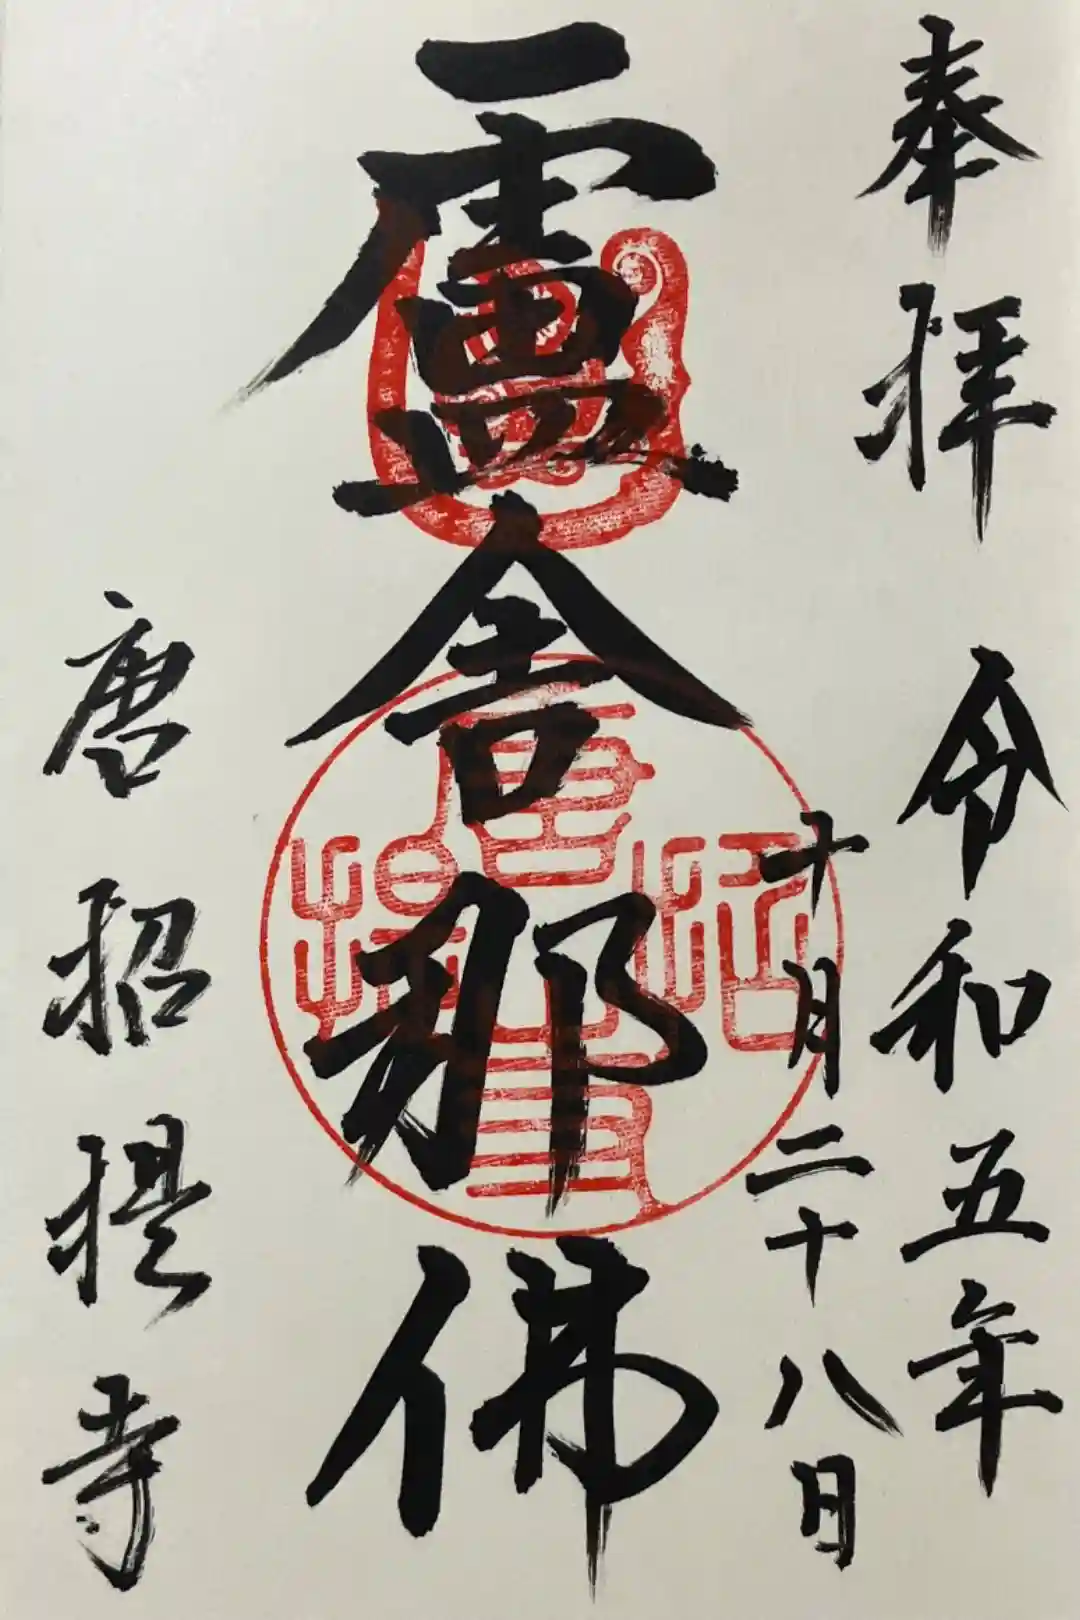 奉拝 令和五年
十月二十八日
盧舎那佛
唐招提寺
唐招提寺